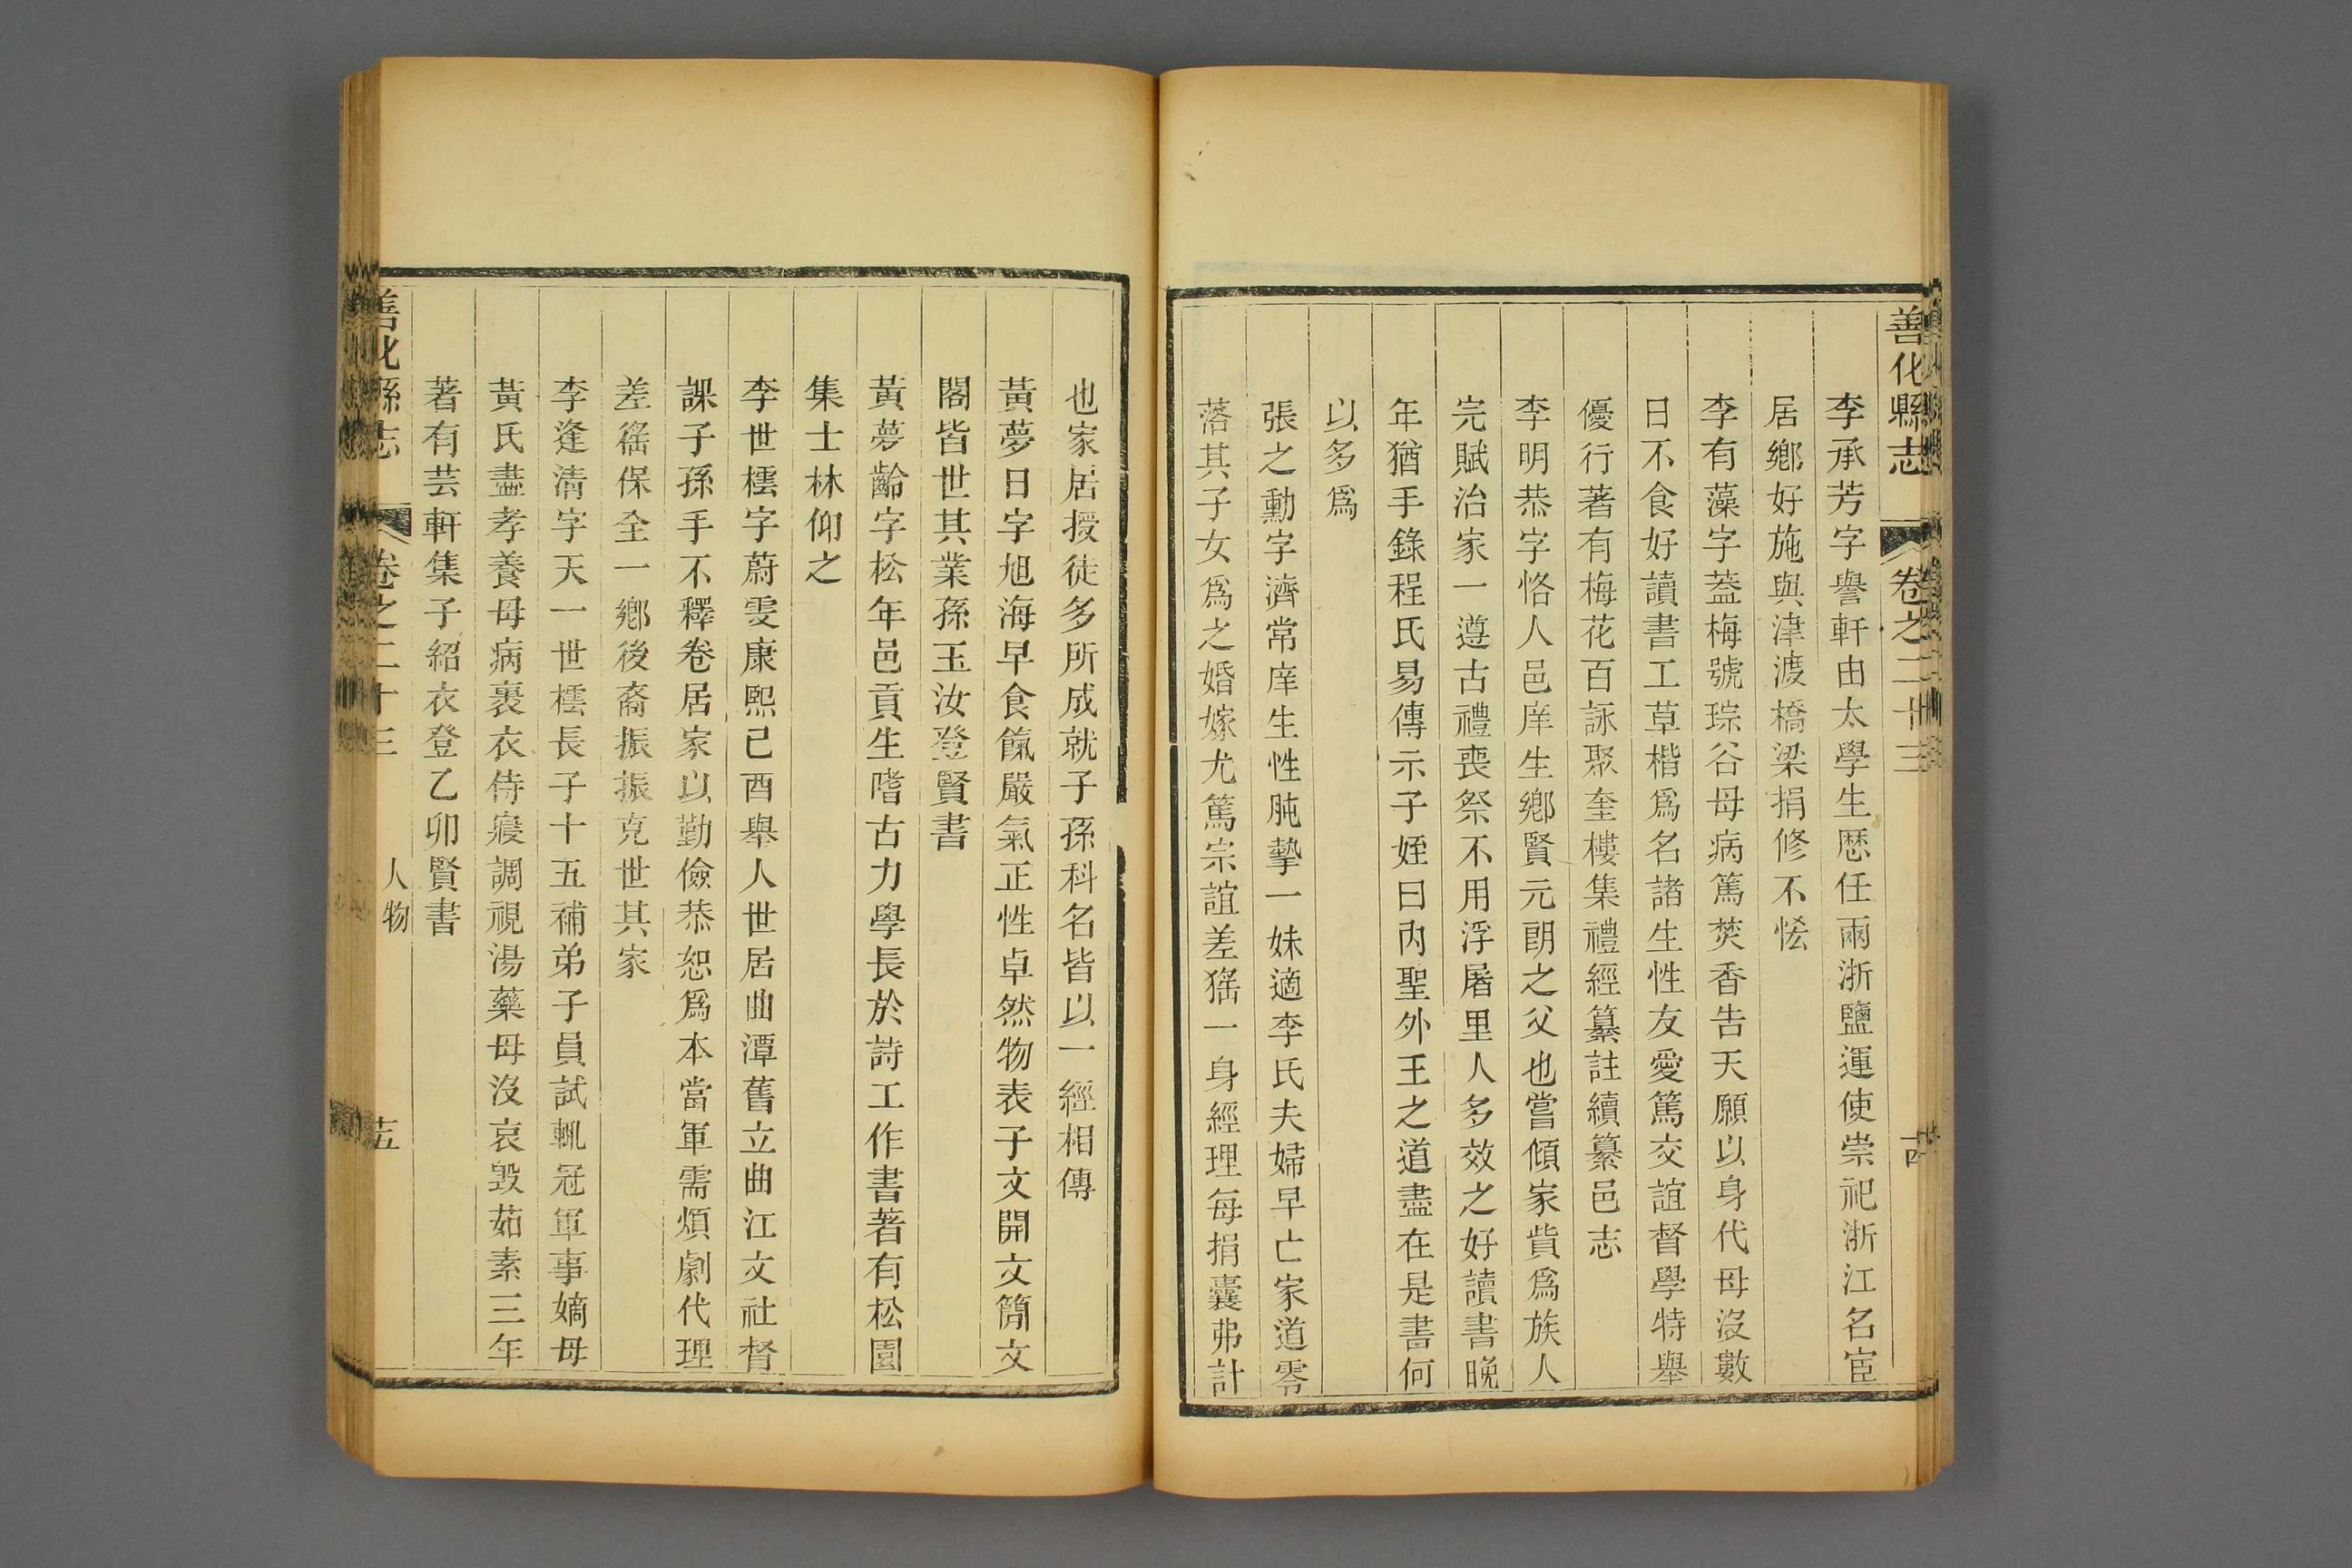 善化縣志　卷之二十三　十四
李承芳字譽軒由太學生歷任兩浙鹽運使崇祀浙江名宦
居鄉好施與津渡橋梁捐修不恡
李有藻字蓋梅號琮谷母病篤焚香告天願以身代母沒數
日不食好讀書工草楷爲名諸生性友愛篤交誼督學特舉
優行著有梅花百詠聚奎樓集禮經纂註續纂邑志
李明恭字恪人邑庠生鄉賢元朗之父也嘗傾家貲爲族人
完賦治家一遵古禮喪祭不用浮屠里人多效之好讀書晚
年猶手錄程氏易傳示子姪曰內聖外王之道盡在是書何
以多爲
張之勳字濟常庠生性肫摯一妹適李氏夫婦早亡家道零
落其子女爲之婚嫁尤篤宗誼差猺一身經理每捐囊弗計
也家居授徒多所成就子孫科名皆以一經相傳
黃夢日字旭海早食餼嚴氣正性卓然物表子文開文簡文
閣皆世其業孫玉汝登賢書
黃夢齡字松年邑貢生嗜古力學長於詩工作書著有松園
集士林仰之
李世樗字蔚雯康熙己酉舉人世居曲潭舊立曲江文社督
課子孫手不釋卷居家以勤儉恭恕爲本當軍需煩劇代理
差徭保全一鄉後裔振振克世其家
李逢清字天一世樗長子十五補弟子員試輒冠軍事嫡母
黃氏盡孝養母病裹衣侍寢調視湯藥母沒哀毀茹素三年
著有芸軒集子紹衣登乙卯賢書
善化縣志　卷之二十三　人物　十五